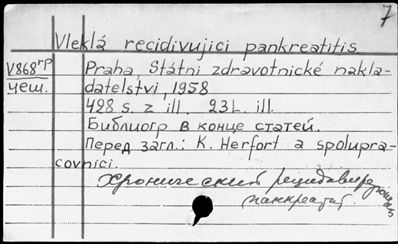 7
Vleklá recidivujici pankreatitis
V868пр Praha, Státni zdravotnické nakla-
чеш. datelstvi, 1958
428 s. z ill. 23L. ill.
Библиогр в конце статей.
Перед загл.: K. Herfort a spolupra-
covníci.
Хронический рецидивирующий
панкреатит